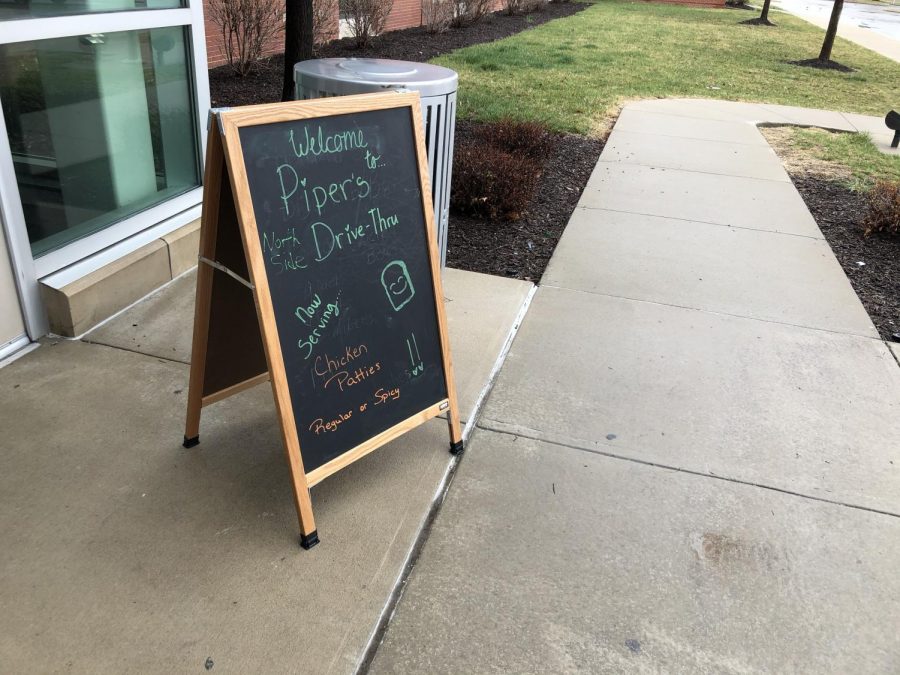 Welcome
to...
Piper's
North Side Drive-Thru
Now Serving...
Chicken Patties
!!
Regular or Spicy